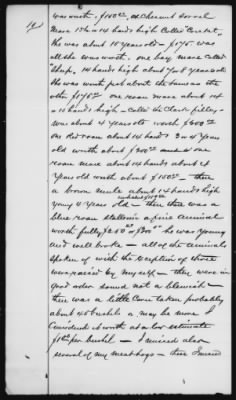 was worth $150.00 a Chesnut Sorrel
Mare 15½ or 14 hands high Called
She was about 15 years old – $175 was
all she was worth. one bay mare Called
14 hands high about 7 or 8 years old
She was worth just about the same as the
other $175.00 one roan mare about 14
or 15 hands high – Called the Clark filley
was about 4 years old worth $200.00
one Red roan about 14 hands 3 or 4 years
old worth about $200.00 and a one
roan mare about 14 hands about 4
years old worth about $150.00 – then
a brown mule about 14 hands high
worth $150.00
young 4 years old – then there was a
blue roan stallion a fine animal
worth fully $250.00 or $300.00 he was young
and well broke – all of the animals
spoken of with the exception of those
were raised by myself – they were in
good order sound not a blemish –
there was a little Corn taken probably
about 40 bushels or may be more I
Considered it worth at a low estimate
per bushel – I missed also
several of my meat hogs – these I missed